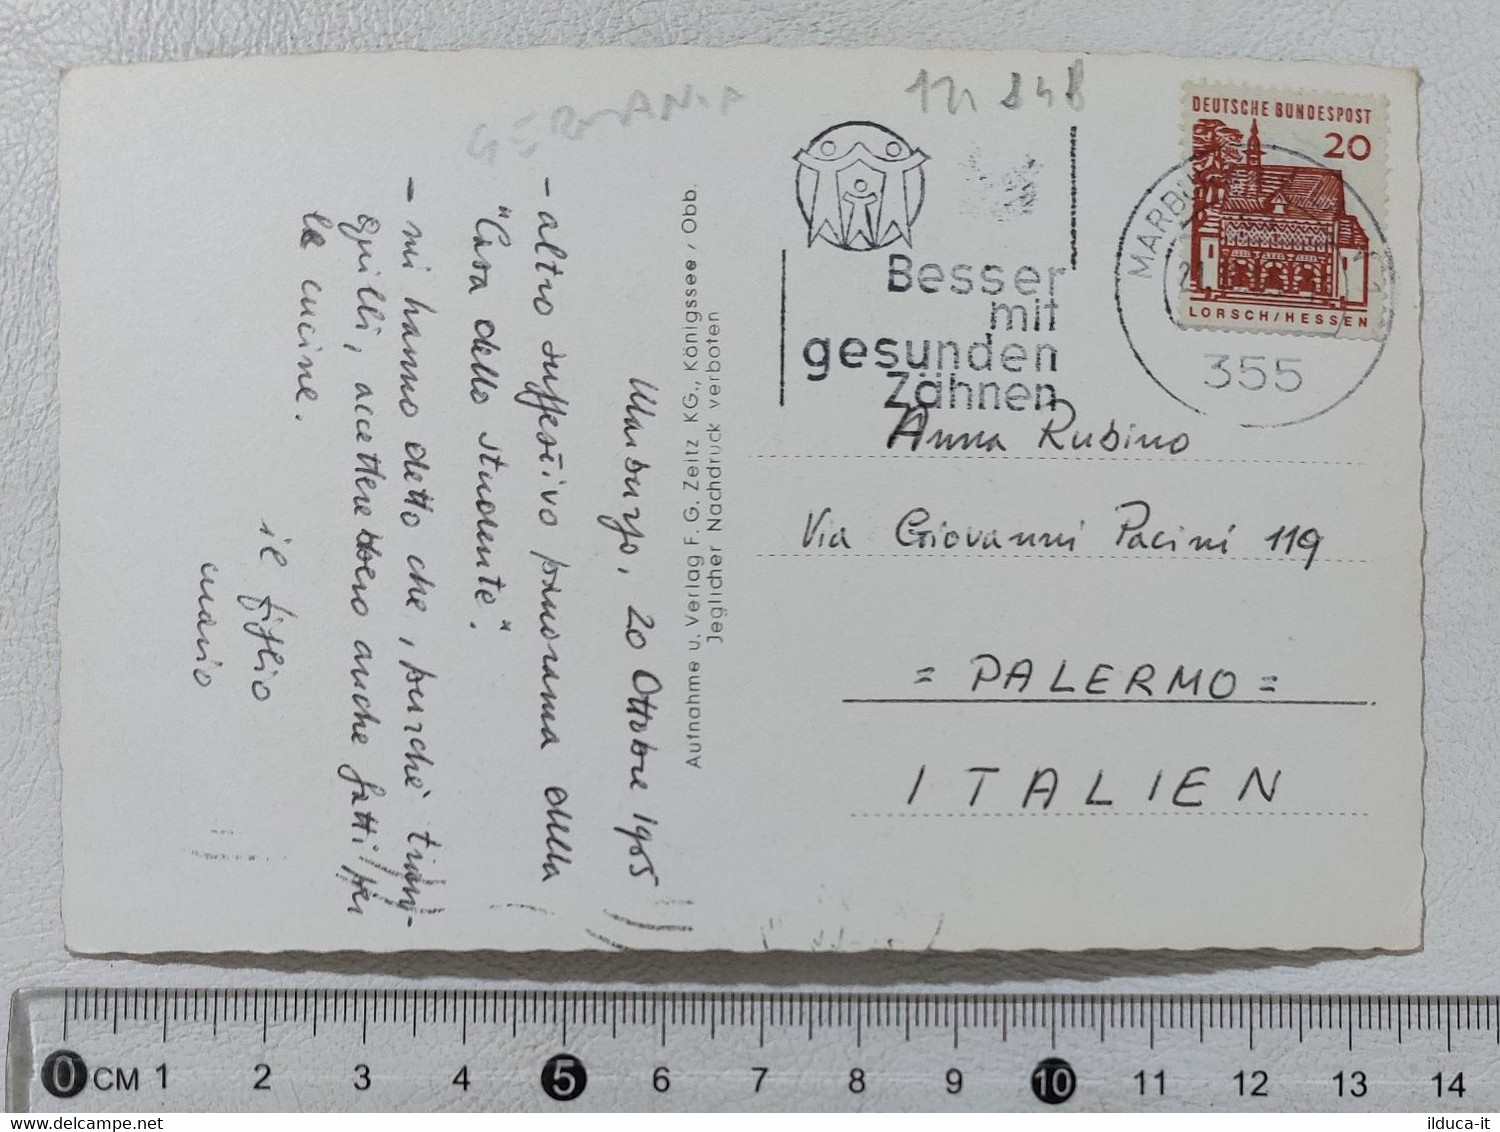 GERMANIA
DEUTSCHE BUNDESPOST
20
LORSCH/HESSEN
MARBURG
355
Besser
mit
gesunden
Zähnen
Anna Rubino
Via Giovanni Pacini 119
= PALERMO =
ITALIEN
Aufnahme u. Verlag F. G. Zeitz KG., Königssee / Obb.
Jeglicher Nachdruck verboten
Marburgo, 20 Ottobre 1965
- altro suggestivo panorama della
"Casa dello studente".
- mi hanno detto che, purché tran-
quilli, accetterebbero anche gatti per
le cucine.
il figlio
mario
0 CM 1 2 3 4 5 6 7 8 9 10 11 12 13 14
delcampe.net
ilduca-it